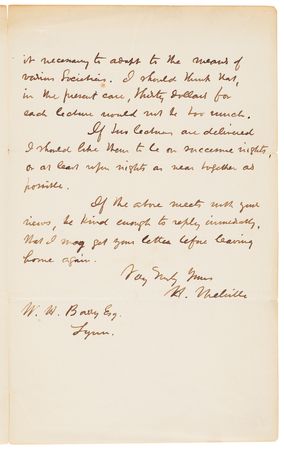 it necessary to adapt to the means of
various Societies. I should think that,
in the present case, thirty dollars for
each lecture would not be too much.
If two lectures are delivered
I should like them to be on successive nights,
or at least upon nights as near together as
possible.
If the above meets with your
views, be kind enough to reply immediately,
that I may get your letter before leaving
home again.
Very Truly Yours
H. Melville
W. W. Esq.
Lynn.